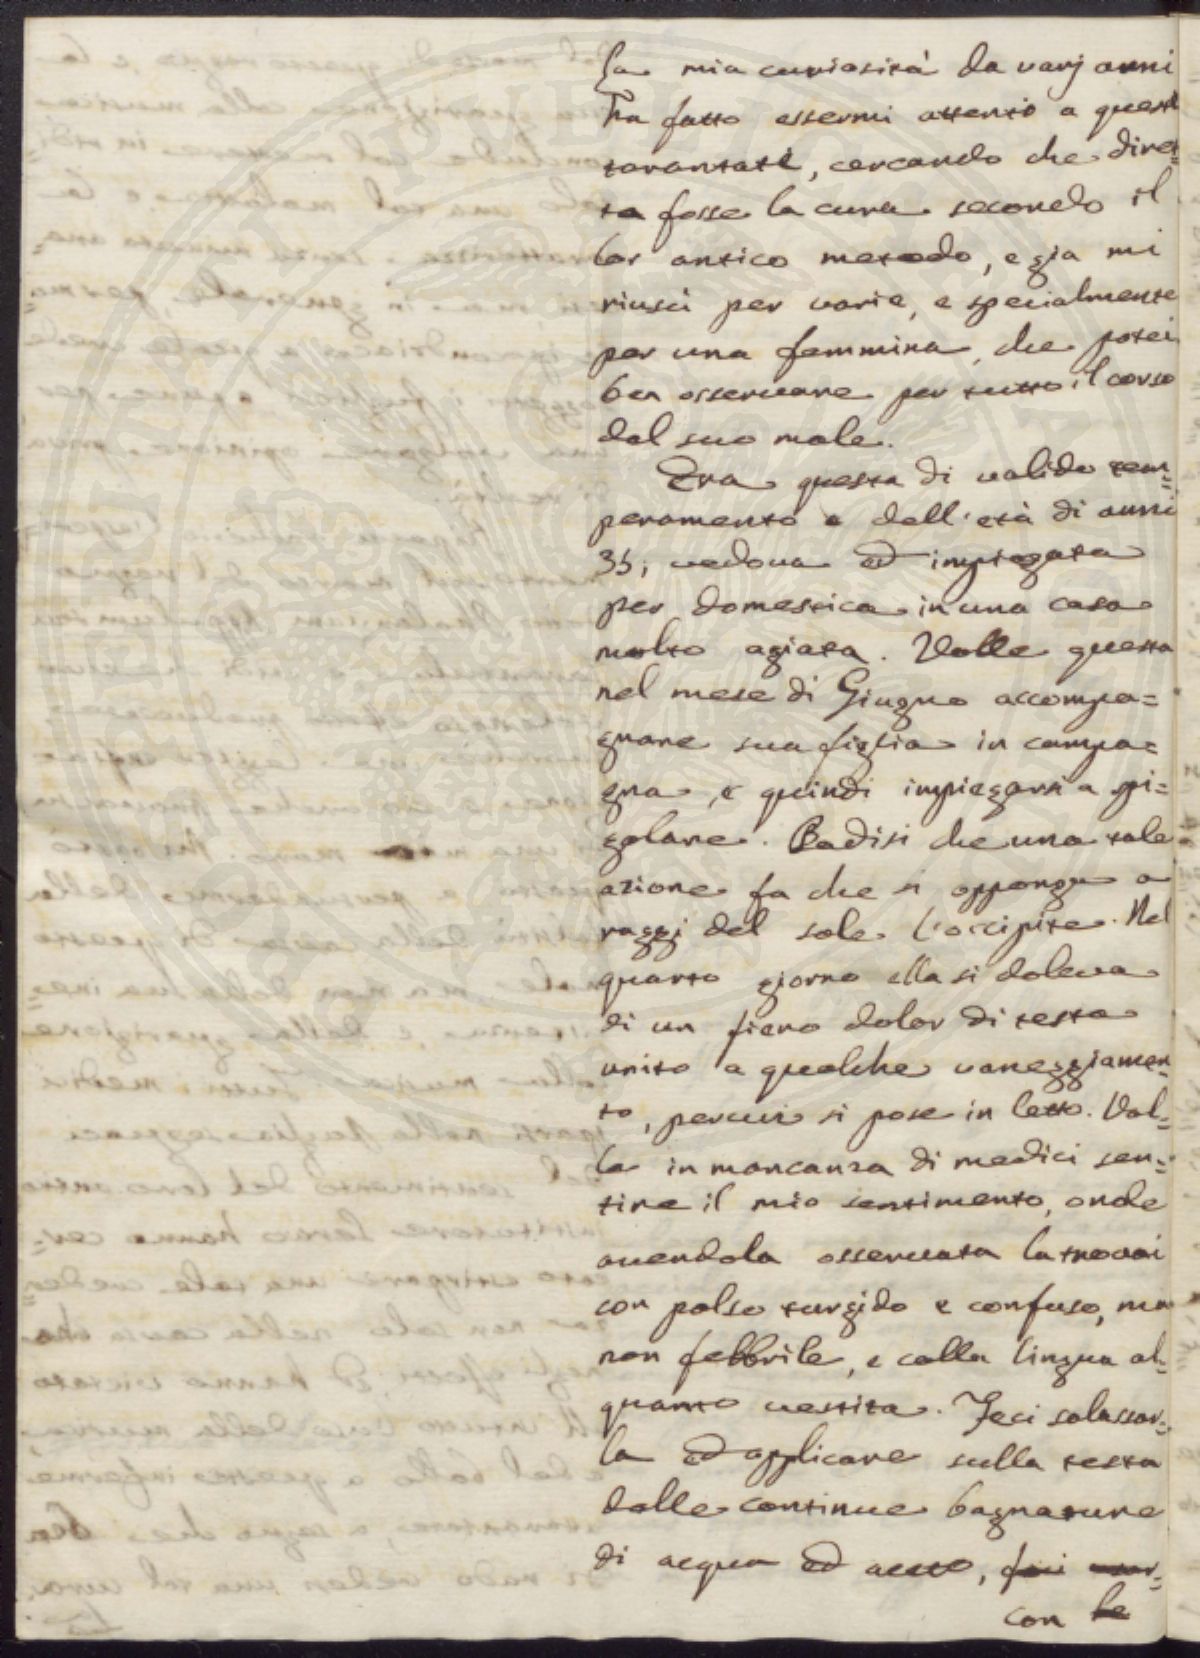 La mia curiosità da varj anni
ha fatto essermi attento a questi
tarantati, cercando che diret=
ta fosse la cura secondo il
lor antico metodo, e gia mi
riuscì per varie, e specialmente
per una femmina, che potei
ben osservare per tutto il corso
del suo male.
Era questa di valido tem=
peramento e dell'età di anni
35, vedova ed impiegata
per domestica in una casa
molto agiata. Volle questa
nel mese di Giugno accompa=
gnare sua figlia in campa=
gna, e quindi impiegarsi a spi=
golare. Badisi che una tale
azione fa che si oppongu a
raggi del sole l'occipite. Nel
quarto giorno ella si doleva
di un fiero dolor di testa
unito a qualche vaneggiamen=
to, percui si pose in letto. Vol=
le in mancanza di medici sen=
tire il mio sentimento, onde
avendola osservata la trovai
con polso turgido e confuso, ma
non febbrile, e colla lingua al=
quanto vestita. Feci salassar=
la ed applicare sulla testa
delle continue bagnature
di acqua ed aceto, fei
con le